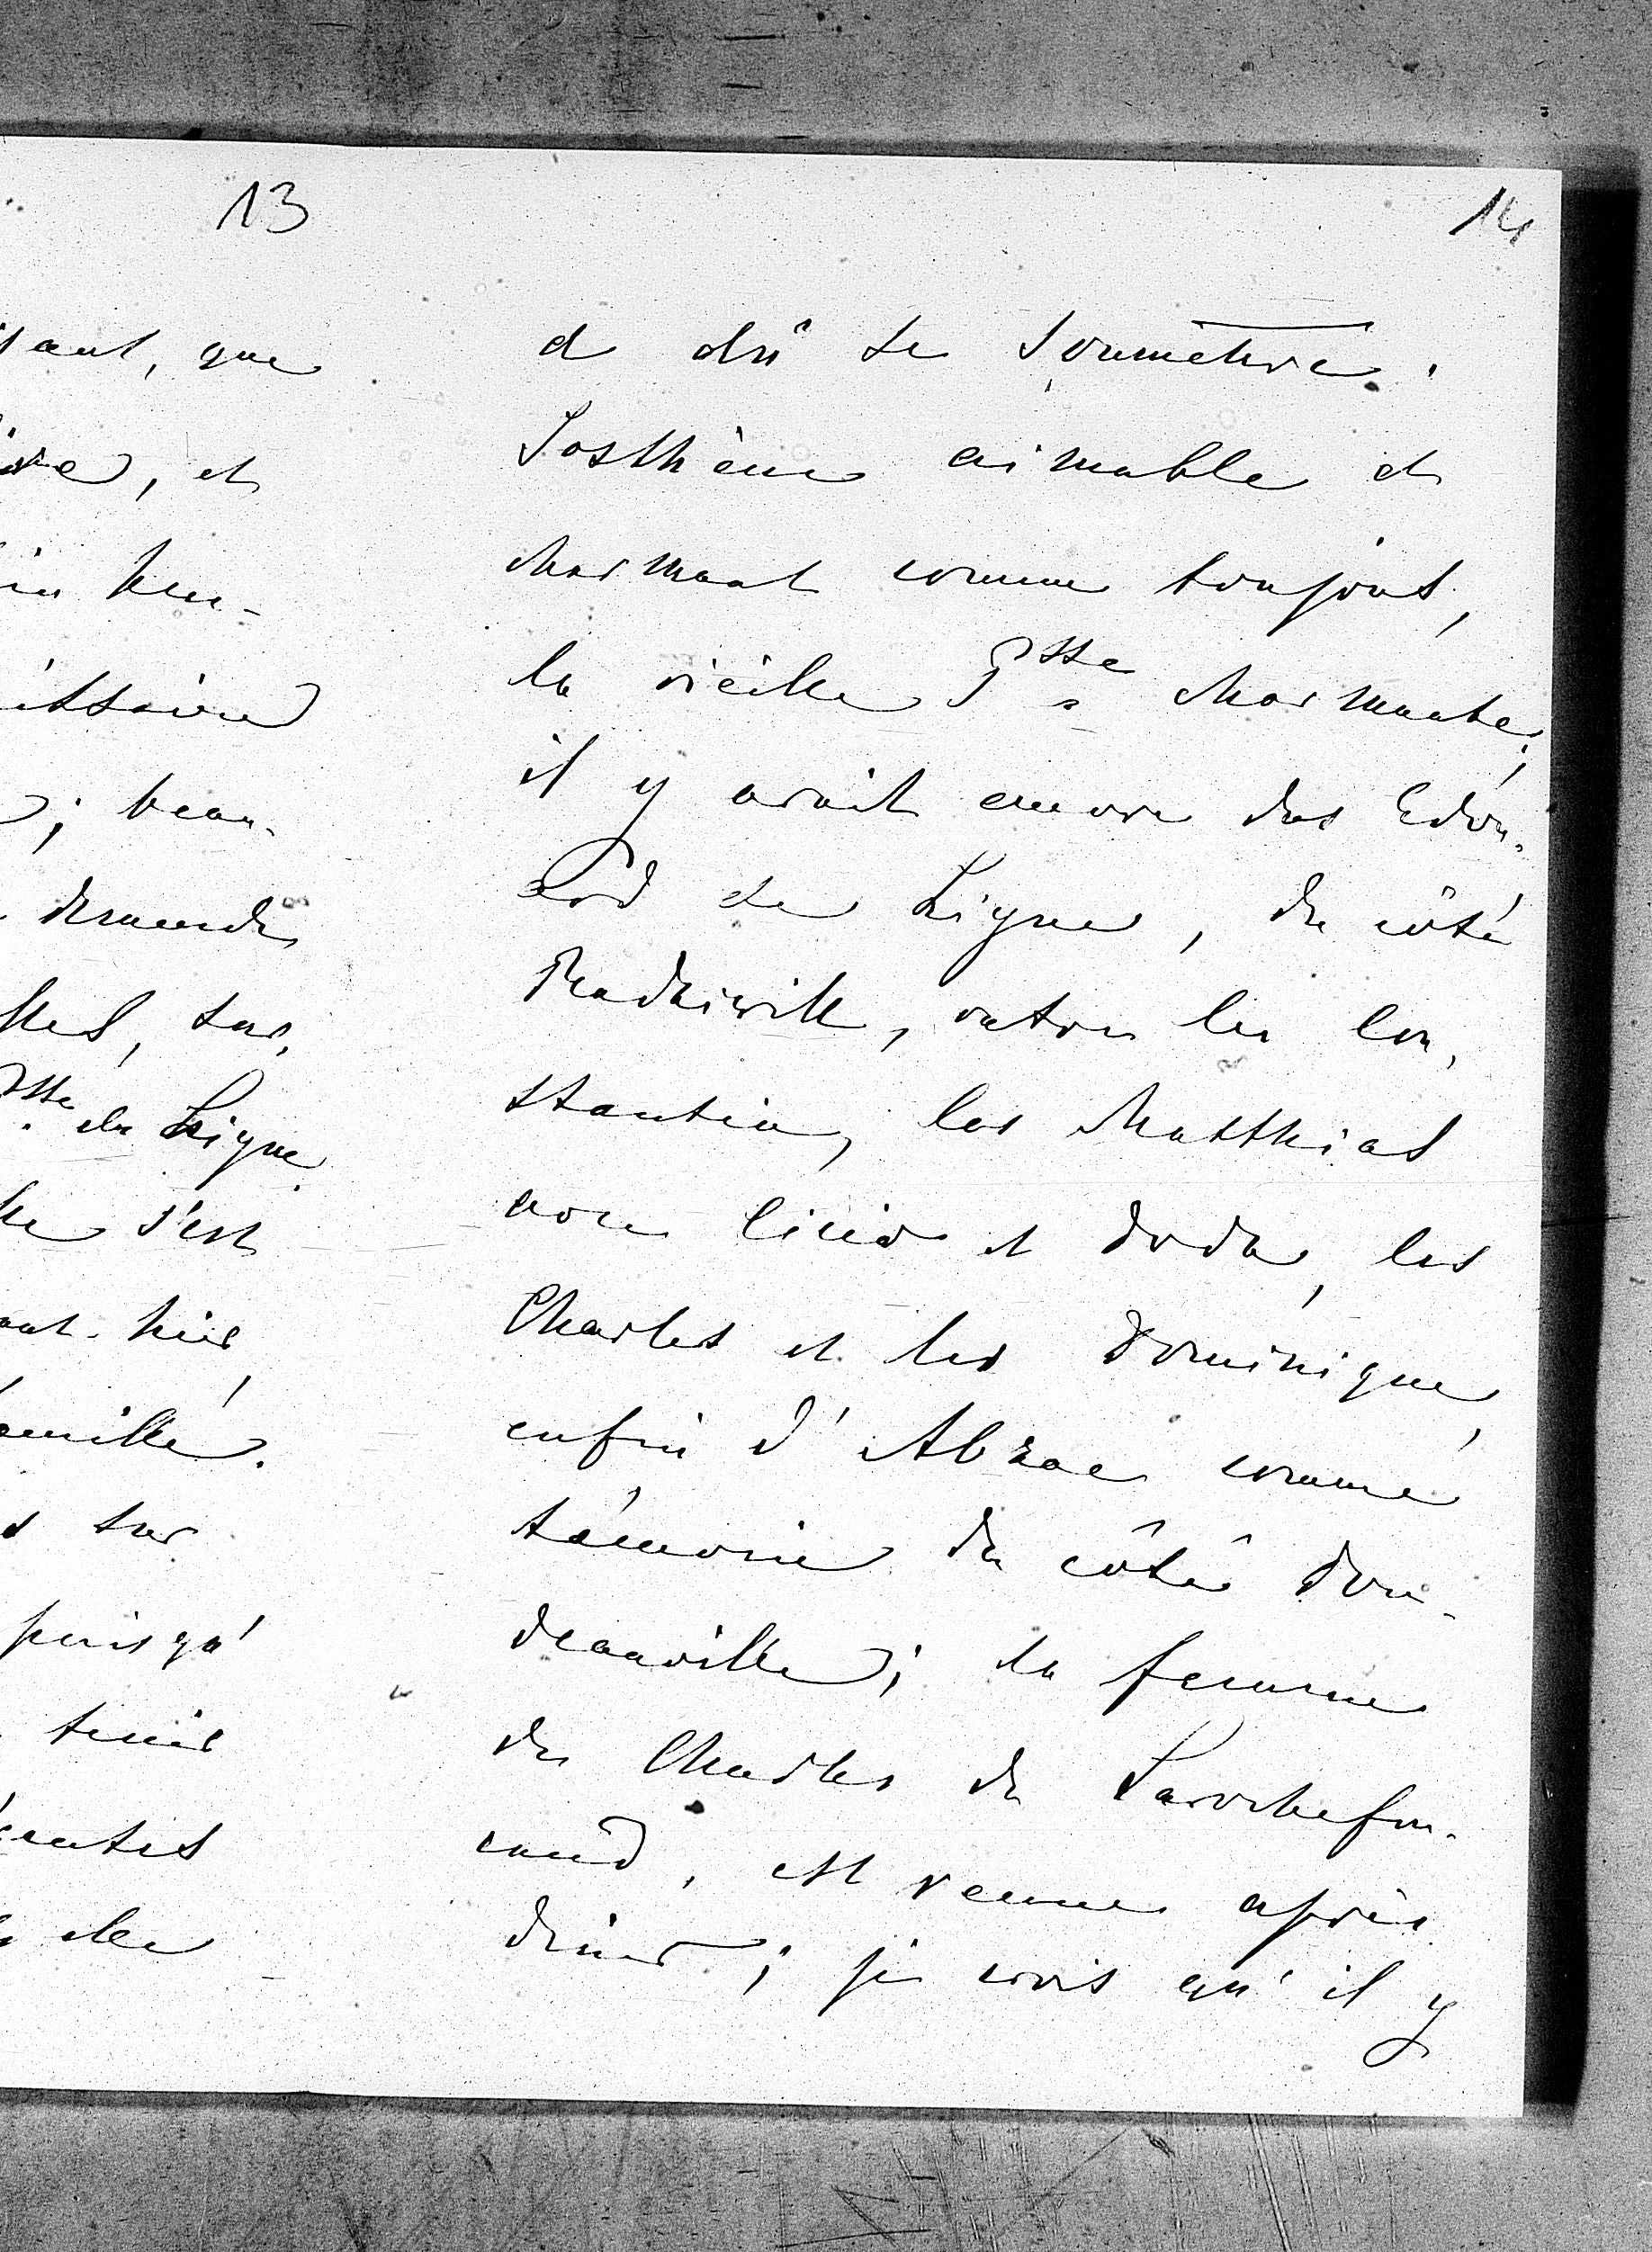 13
sant, que
, et
in hu-
issaire
; beau-
demandé
les, sur,
sse de Ligne
s'est
hier,
famille.
sur
puisqu'
tenir
entes
elle
14
a dû se soumettre.
Sosthène aimable et
charmant comme toujours,
la vieille Psse charmante;
il y avait encore des Edou-
ard de Ligne, du côté
Radziwill, outre les Con-
stantin, les Matthias
avec Cicia et Doda, les
Charles et les Dominique,
enfin d'Abzac comme
témoin du côté Dou-
deauville; la femme
de Charles de Larochefou-
cauld, est venue après
diner; je crois qu'il y